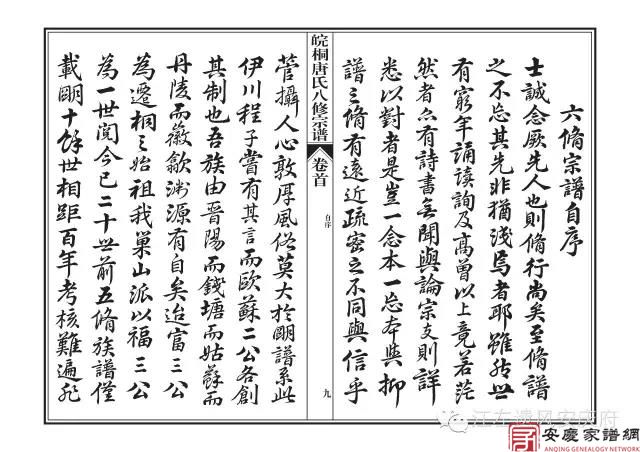 六脩宗譜自序
士誠念厥先人也則脩行尚矣至脩譜
之不忘其先非猶淺焉者耶雖然世
有窮年誦读詢及高曾以上竟若茫
然者亦有詩書無聞與論宗支則詳
悉以對者是豈一念本一忘本與抑
譜之脩有遠近疏密之不同與信乎
皖桐唐氏八修宗谱
卷首
自序
九
管攝人心敦厚風俗莫大於明譜系此
伊川程子嘗有其言而歐蘇二公各創
其制也吾族由晉陽而錢塘而姑蘇而
丹陵而徽歙渊源有自矣迨富三公
為遷桐之始祖我巢山派以福三公
為一世閲今已二十世前五脩族譜僅
載明十餘世相距百年考核難遍非
江左遗风安庆府
安慶家譜網
ANQING GENEALOGY NETWORK